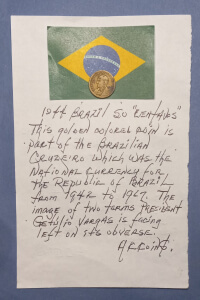 1944 BRAZIL 50 "CENTAVOS"
This golden colored coin is
part of the Brazilian
Cruzeiro which was the
National Currency for
the Republic of Brazil
from 1942 to 1967. The
image of two terms President
Getulio Vargas is facing
left on its obverse.